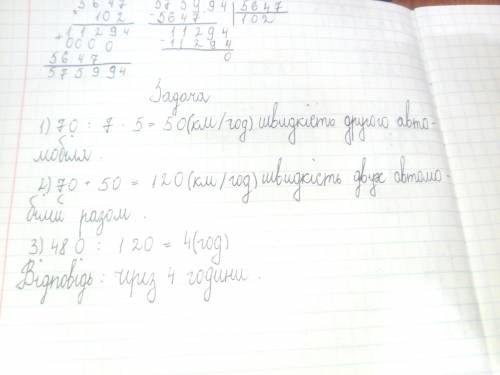 5647   575994 | 5647
102   5647   102
11294   11294
0000   11294
5647   0
575994
Задача
1) 70 : 7 · 5 = 50 (км/год) швидкість другого авто-
мобіля.
2) 70 + 50 = 120 (км/год) швидкість двух автомо-
біля разом.
3) 480 : 120 = 4 (год)
Відповідь: через 4 години.